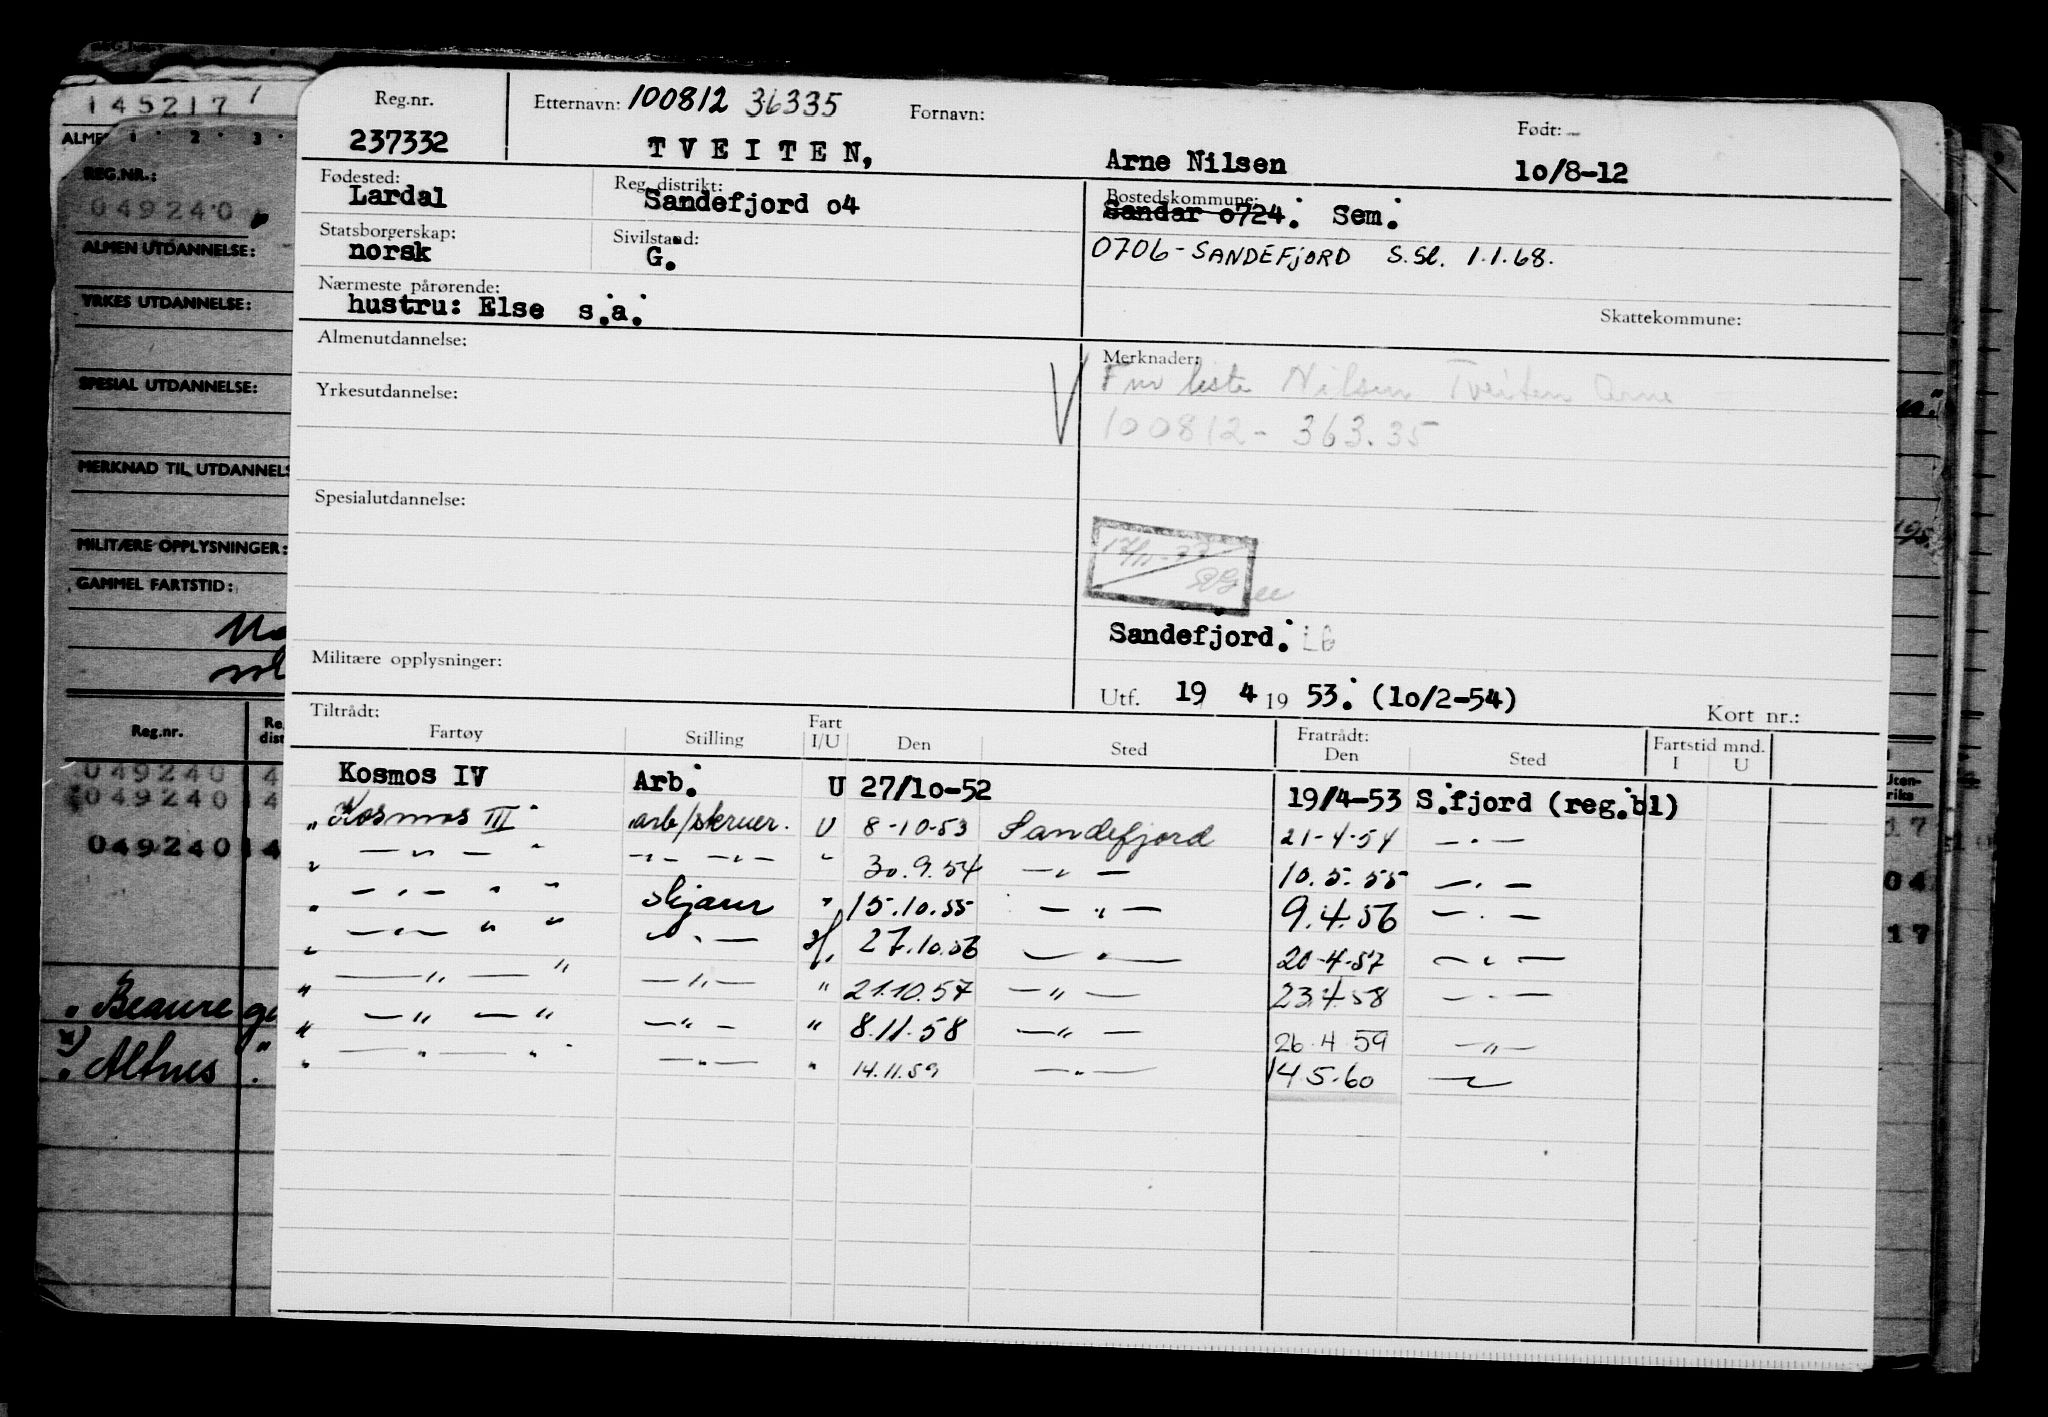 145217
ALME 1 2 3
REG.NR.:
049240
ALMEN UTDANNELSE:
YRKES UTDANNELSE:
SPESIAL UTDANNELSE:
MERKNAD TIL UTDANNELS
MILITÆRE OPPLYSNINGER:
GAMMEL FARTSTID:
Reg.nr. Re. dist
049240 14
049240 14
049240 14
" Beaure ge
x)
" Altnes "
Reg.nr.
237332
Etternavn: 100812 36335
TVEITEN,
Fornavn:
Arne Nilsen
Født:
10/8-12
Fødested:
Lardal
Reg. distrikt:
Sandefjord o4
Bostedskommune:
Sandar o724. Sem.
Statsborgerskap:
norsk
Sivilstand:
G.
0706-SANDEFJORD S.Sl. 1.1.68.
Nærmeste pårørende:
hustru: Else s.a.
Skattekommune:
Almenutdannelse:
Merknader:
Fnr liste Nilsen Tveiten Arne
100812-363.35
Yrkesutdannelse:
Spesialutdannelse:
Sandefjord. LG
Militære opplysninger:
Utf. 19 4 19 53. (10/2-54)
Kort nr.:
Tiltrådt:
Fartøy Stilling Fart I/U Den Sted Fratrådt: Den Sted Fartstid mnd. I U
Kosmos IV Arb. U 27/10-52 19/4-53 S.fjord (reg.bl)
" Kosmos III arb/skruer. U 8-10-53 Sandefjord 21-4-54 — " —
" — " — " — " — — " — " 30.9.54 — " — 10.5.55 — " —
" — " — " " skjærer " 15.10.55 — " — 9.4.56 — " —
" — " — " " — " — 27.10.56 — " — 20-4-57 — " —
" — " — " — " — " 21.10.57 — " — 23.4.58 — " —
" — " — " — " — " 8.11.58 — " — 26.4.59 — " —
" — " — " — " — " 14.11.59 — " — 14.5.60 —
Uten-
riks
17
04
17